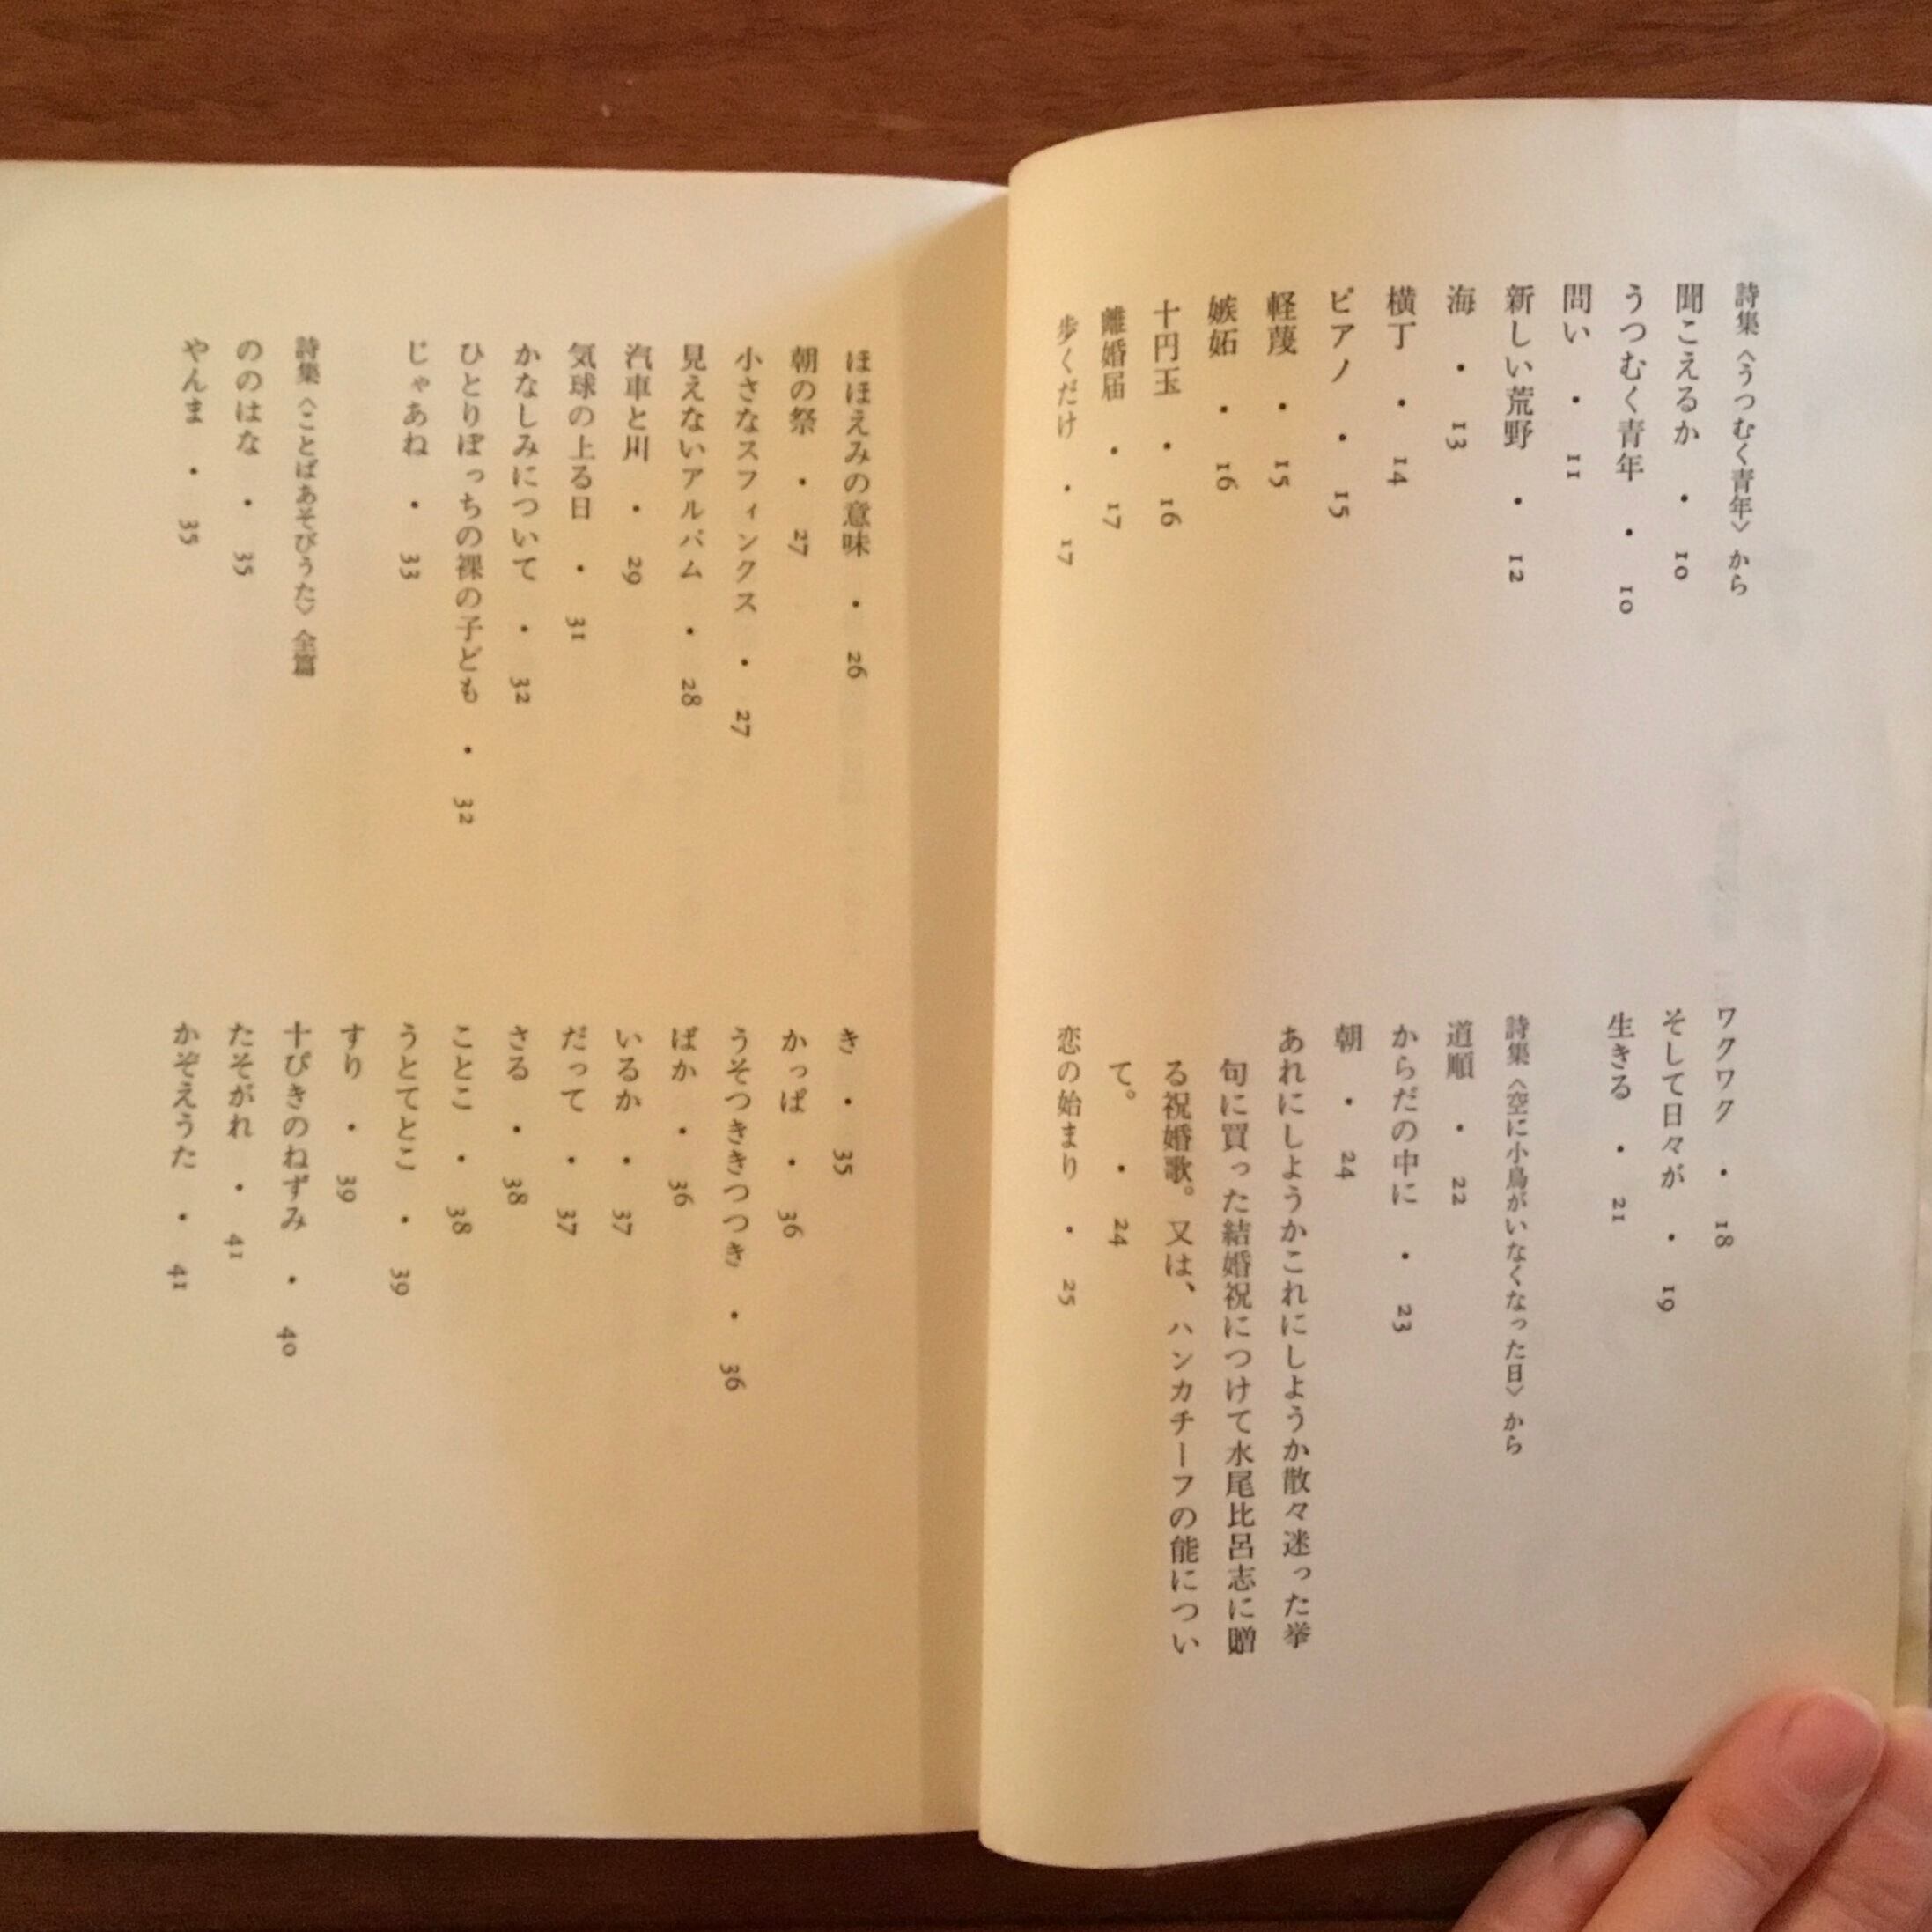 詩集〈うつむく青年〉から
聞こえるか・10
うつむく青年・10
問い・11
新しい荒野・12
海・13
横丁・14
ピアノ・15
軽蔑・15
嫉妬・16
十円玉・16
離婚届・17
歩くだけ・17
ワクワク・18
そして日々が・19
生きる・21
詩集〈空に小鳥がいなくなった日〉から
道順・22
からだの中に・23
朝・24
あれにしようかこれにしようか散々迷った挙
句に買った結婚祝につけて水尾比呂志に贈
る祝婚歌。又は、ハンカチーフの能につい
て。・24
恋の始まり・25
ほほえみの意味・26
朝の祭・27
小さなスフィンクス・27
見えないアルバム・28
汽車と川・29
気球の上る日・31
かなしみについて・32
ひとりぼっちの裸の子ども・32
じゃあね・33
詩集〈ことばあそびうた〉全篇
ののはな・35
やんま・35
き・35
かっぱ・36
うそつききつつき・36
ばか・36
いるか・37
だって・37
さる・38
ことこ・38
うとてとこ・39
すり・39
十ぴきのねずみ・40
たそがれ・41
かぞえうた・41